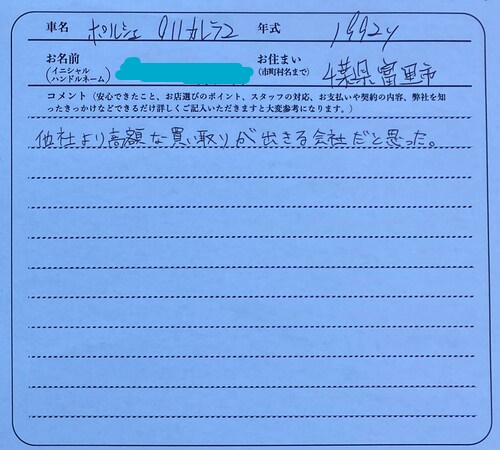 車名 ポルシェ 911カレラ2 年式 1992y
お名前 お住まい
(イニシャル (市町村名まで) 千葉県富里市
ハンドルネーム)
コメント（安心できたこと、お店選びのポイント、スタッフの対応、お支払いや契約の内容、弊社を知
ったきっかけなどできるだけ詳しくご記入いただきますと大変参考になります。）
他社より高額な買い取りが出きる会社だと思った。